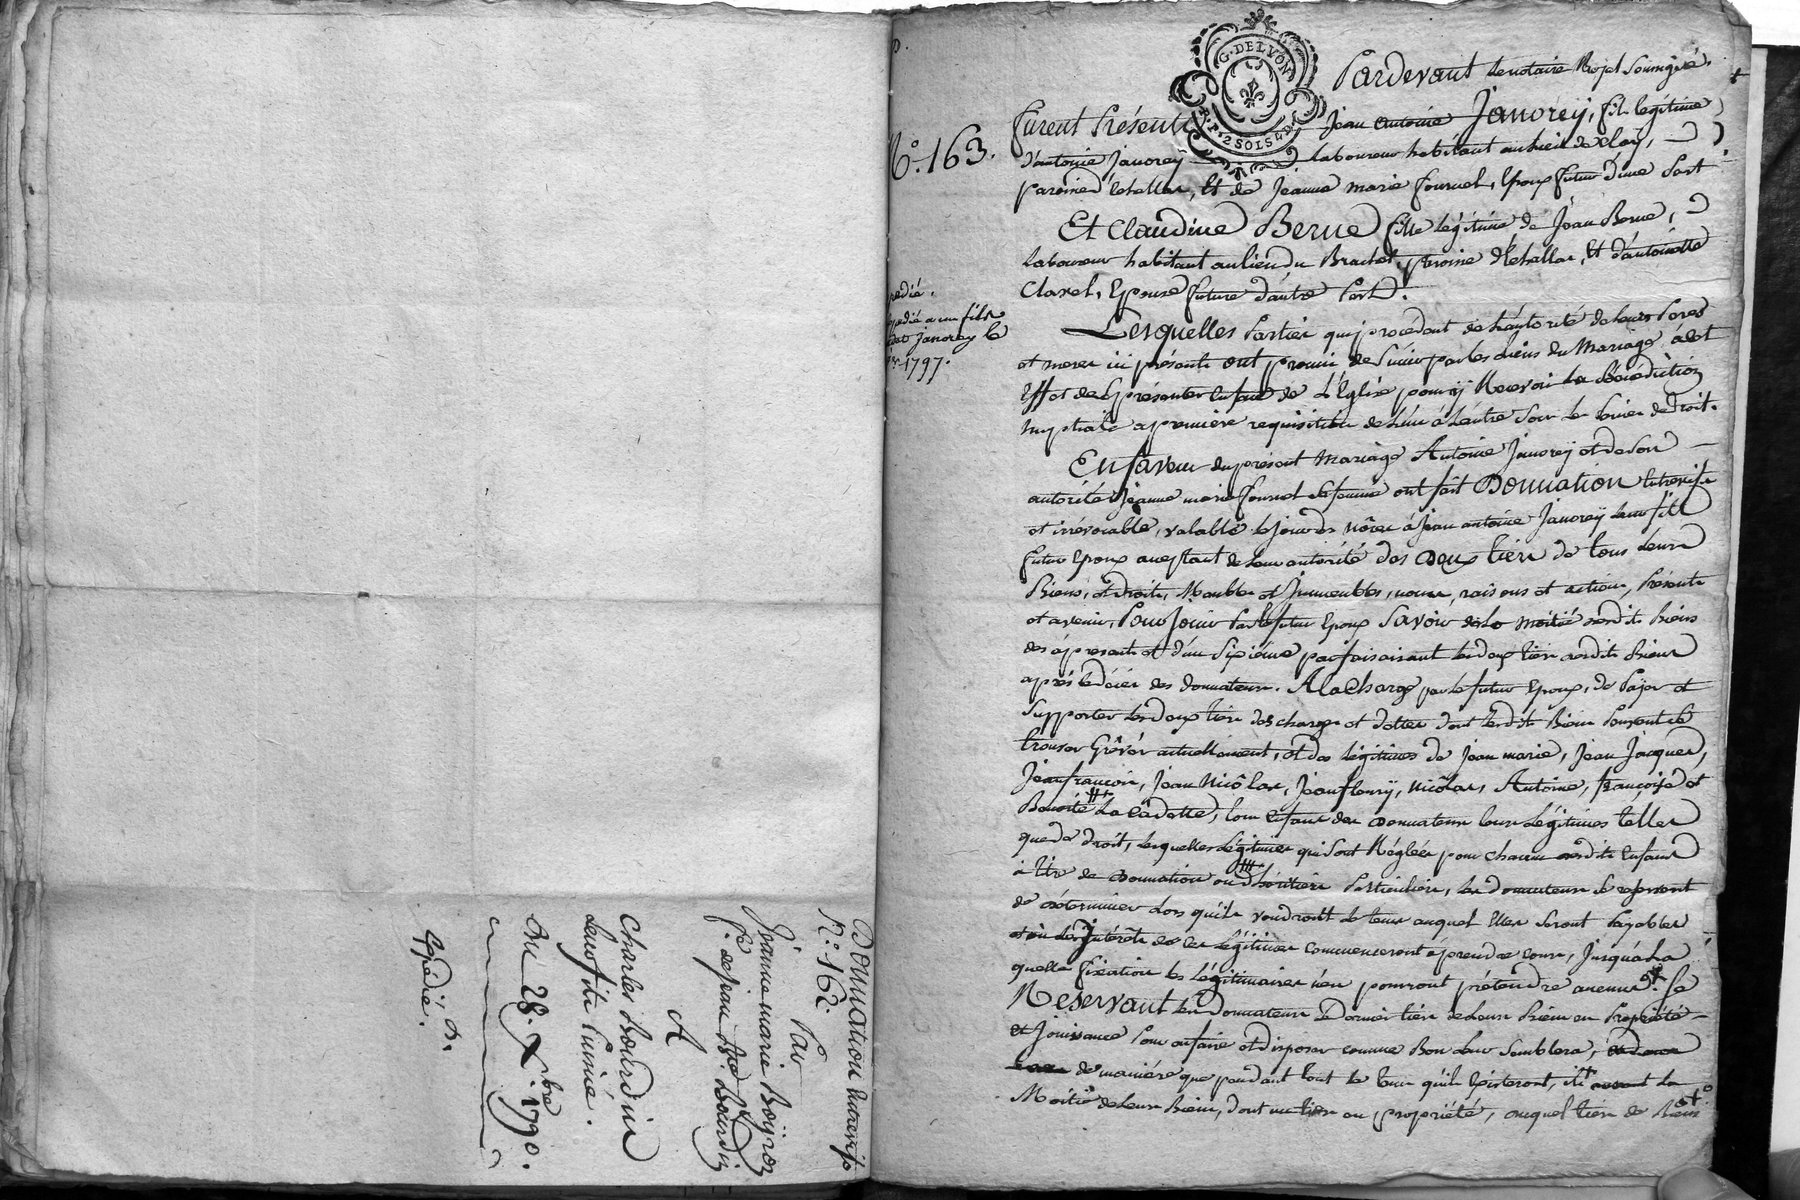 Donnation entrevifs
N.° 162.
Par
Jeanne marie Boijron
f.e de Jean B.te Bourdin
A
Charles Bourdin
leur fils Puiné.
Du 28. Xbre 1790.
Expédié.
N.° 163.
expédié a un fils
Janorey le
1797.
G. DE LYON
2 SOLS
Pardevant le notaire Royal Soussigné,
furent Présents Jean Antoine Janorey, fils legitime
d'antoine Janorey laboureur habitant au lieu de
paroisse d'Echallas, Et de Jeanne marie fournel, Epoux futur d'une Part
Et Claudine Berne fille légitime de Jean Berne,
laboureur habitant au lieu du Brachet, paroisse d'Echallas, Et d'antoinette
Clavel, Epouse future d'autre Part.
Lesquelles Parties qui procedant de l'autorité de leurs Peres
et meres ici présents ont promis de S'unir par les liens du Mariage, à cet
Effet de Se présenter en face de L'Eglise pour ÿ Recevoir La Bénédiction
Nuptiale a première requisition de L'un à L'autre Sous les Peines de Droit.
En faveur du présent Mariage Antoine Janorey et de Son
autorité Jeanne marie fournel Sa femme ont fait Donnation Entrevifs
et irrévocable, valable à Jean antoine Janorey leur fils
futur Epoux acceptant de leur autorité des Deux tiers de tous leurs
Biens, et droits, Meubles et Immeubles, noms, raisons et actions, Présents
et avenir, Pour Jouir Par le futur Epoux Savoir de la moitié desdits Biens
dès àpresent et d'un Sixième parfaisaisant les deux tiers desdits Biens
après le décès des donnateurs. A la Charge par le futur Epoux, de Païer et
Supporter les deux tiers des charges et dettes dont lesdits Biens Peuvent Se
trouver Grévés actuellement, et des légitimes de Jean marie, Jean Jacques,
Jean françois, Jean Nicolas, Jean fleury, Nicolas, Antoine, françoise et
Benoite La Cadette, tous Enfans des Donnateurs leurs Légitimes telles
que de droit, lesquelles Légitimes qui Sont Réglées pour chacun desdits Enfans
à titre de Donnation ou d'héritiers Particuliers, les donnateurs Se reservent
de déterminer lors qu'ils voudront le tems auquel Elles Seront Payables
et où les Intérêts de ces Légitimes commenceront à prendre cours, Jusqu'à La
quelle fixation les Légitimaires n'en pourront prétendre aucuns. Se
Reservant les Donnateurs Le Dernier tiers de leurs Biens en Propriété
et Jouissance Pour en faire et disposer comme Bon leur Semblera,
de maniére que pendant tout le tems qu'ils Existeront, ils la
Moitié de leurs Biens, dont un tiers en propriété, auquel tiers de Biens